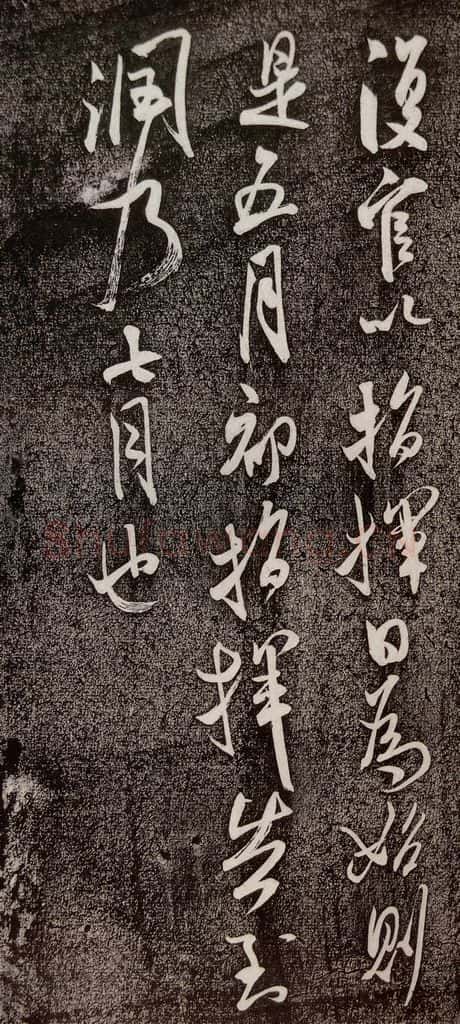 復官以指揮日為始則
是五月初指揮告到
潤乃七月也